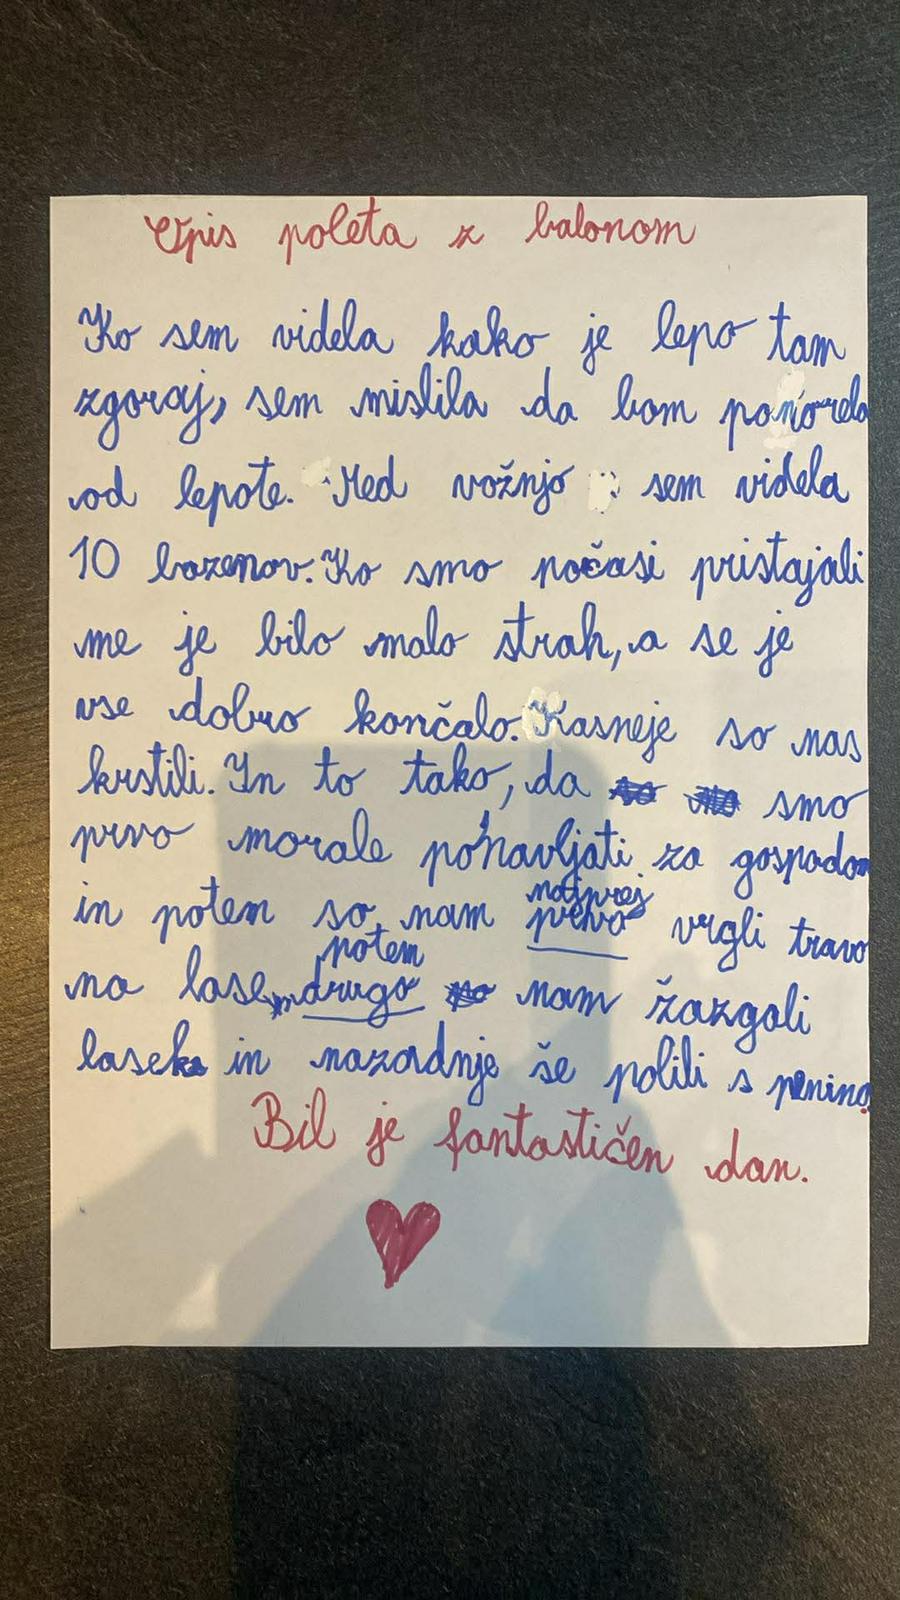 Opis poleta z balonom
Ko sem videla kako je lepo tam
zgoraj, sem mislila da bom ponorela
od lepote. Med vožnjo sem videla
10 bazenov. Ko smo počasi pristajali
me je bilo malo strah, a se je
vse dobro končalo. Kasneje so nas
krstili. In to tako, da smo
prvo morale ponavljati za gospodom
in potem so nam najprej vrgli travo
na lase, potem nam zažgali
lase in nazadnje še polili s penino.
Bil je fantastičen dan.